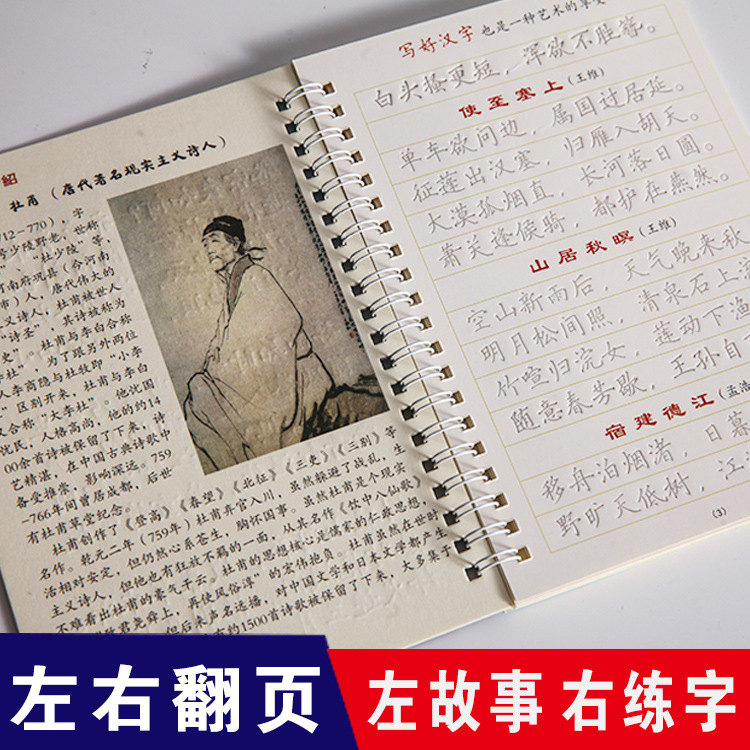 绍
杜甫 (唐代著名现实主义诗人)
712~770),字
号少陵野老,世称
、“杜少陵”等,
河南府巩县(今河南
市)人,唐代伟大的
义诗人,杜甫被世人
“诗圣”,其诗被称为
史”。杜甫与李白合称
李杜”,为了跟另外两位
人李商隐与杜牧即“小李
”区别开来,杜甫与李白
又合称“大李杜”。他忧国
忧民,人格高尚,他的约14
00余首诗被保留了下来,诗
艺精湛,在中国古典诗歌中
备受推崇,影响深远。759
-766年间曾居成都,后世
有杜甫草堂纪念。
杜甫创作了《登高》《春望》《北征》《三吏》《三别》等
名作。乾元二年(759年)杜甫弃官入川,虽然躲避了战乱,生
活相对安定,但仍然心系苍生,胸怀国事。虽然杜甫是个现实
主义诗人,但他也有狂放不羁的一面,从其名作《饮中八仙歌》
不难看出杜甫的豪气干云。杜甫的思想核心是儒家的仁政思想,
致君尧舜上,再使风俗淳”的宏伟抱负。杜甫虽然在世时
但后来声名远播,对中国文学和日本文学都产生
约1500首诗歌被保留了下来,大多集于
写好汉字 也是一种艺术的享受
白头搔更短,浑欲不胜簪。
使至塞上(王维)
单车欲问边,属国过居延。
征蓬出汉塞,归雁入胡天。
大漠孤烟直,长河落日圆。
萧关逢候骑,都护在燕然。
山居秋暝(王维)
空山新雨后,天气晚来秋
明月松间照,清泉石上流
竹喧归浣女,莲动下渔
随意春芳歇,王孙自
宿建德江(孟浩
移舟泊烟渚,日暮
野旷天低树,江
(3)
左右翻页
左故事 右练字